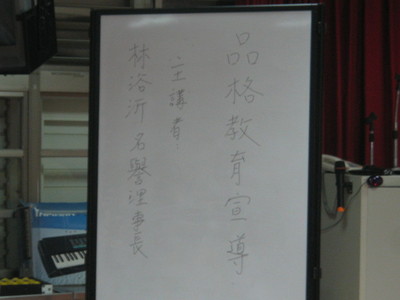 品格教育宣導
主講者:
林浴沂名譽理事長